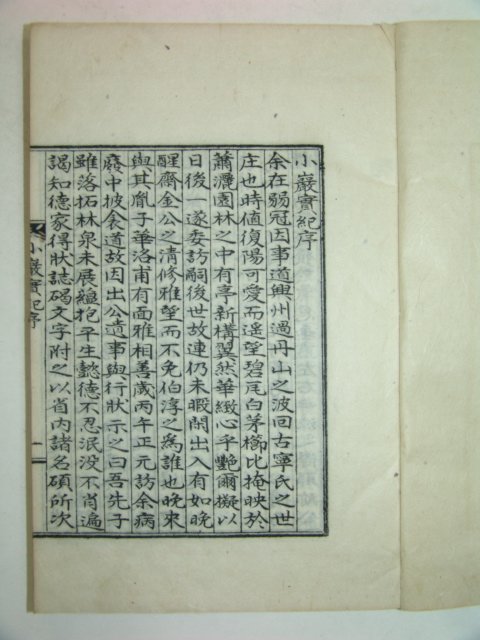 小巖實紀序
余在弱冠因事道興州過丹山之波回古寧氏之世
庄也時値復陽可愛而遥望碧瓦白茅櫛比掩映於
蕭灑園林之中有亭新構翼然華緻心乎艶爾擬以
日後一遂委訪嗣後世故連仍未暇閒出入有如晩
醒齋金公之清修雅望而不免伯淳之爲誰也晩來
與其胤子華洛甫有面雅相善歲丙午正元訪余病
廢中披衾道故因出公遺事與行狀示之曰吾先子
雖落拓林泉未展蘊抱平生懿德不忍泯没不肖遍
謁知德家得狀誌碣文字附之以省内諸名碩所次
小巖實紀序
一